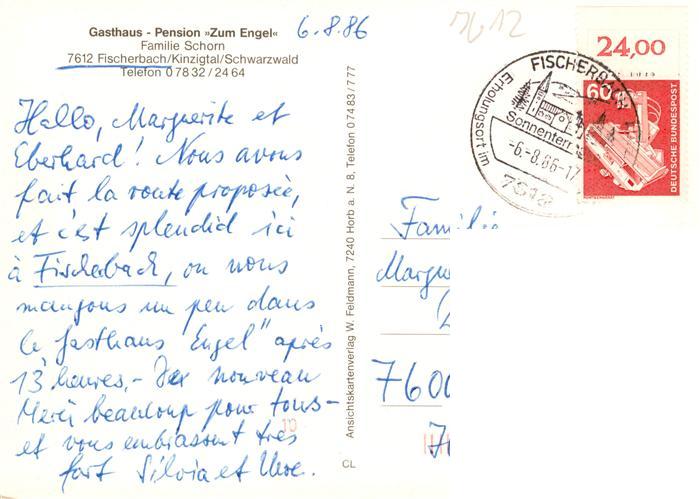 Gasthaus - Pension »Zum Engel«
Familie Schorn
7612 Fischerbach/Kinzigtal/Schwarzwald
Telefon 0 78 32 / 24 64
6.8.86
Hallo, Marguerite et
Eberhard! Nous avons
fait la route proposée,
et c'est splendid ici
à Fischerbach, ou nous
mangeons un peu dans
le Gasthaus Engel" après
13 heures.- De nouveau
Merci beaucoup pour tous-
et vous embrassent très
fort Silvia et Uwe.
Ansichtskartenverlag W. Feldmann, 7240 Horb a. N. 8, Telefon 0 74 83 / 777
CL
7612
24,00
60
DEUTSCHE BUNDESPOST
FISCHERBACH
Erholungsort im
Sonnenterr
-6.-8.86-17
7612
Famili
Margu
760